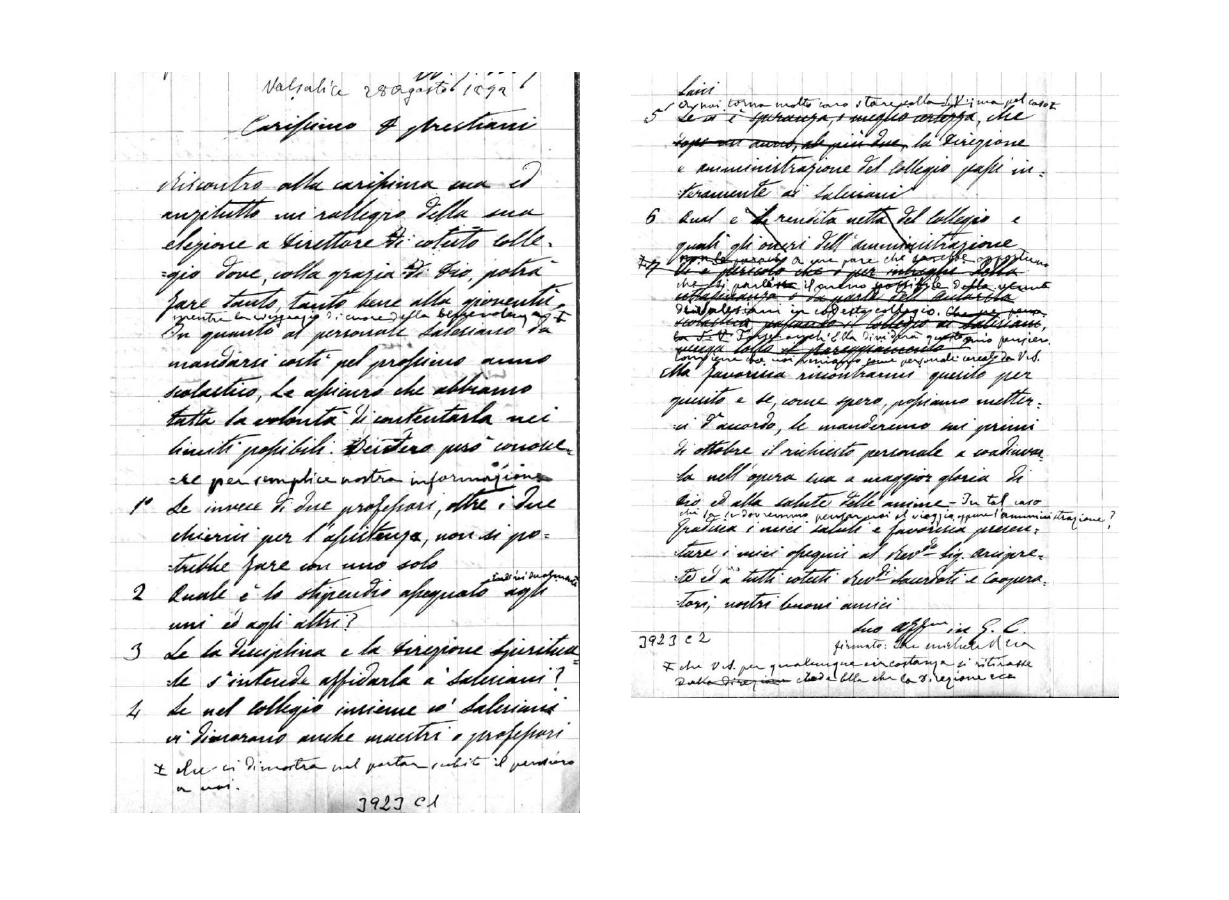 Valsalice 28 agosto 1892
Carissimo D.
Riscontro alla carissima sua ed
anzitutto mi rallegro della sua
elezione a Direttore di cotesto Colle=
=gio dove, colla grazia di Dio, potrà
fare tanto, tanto bene alla gioventù.
mentre la ringrazio di cuore della benevolenza
In quanto al personale Salesiano da
mandarsi costì pel prossimo anno
scolastico, La assicuro che abbiamo
tutta la volontà di contentarla nei
limiti possibili. Desidero però conosce=
=re per semplice nostra informazione
1° Se invece di due professori, oltre i due
chierici per l'assistenza, non si po=
trebbe fare con uno solo
2 Quale è lo stipendio assegnato individualmente agli
uni ed agli altri?
3 Se la disciplina e la direzione spiritua=
le s'intende affidarla a' Salesiani?
4 Se nel collegio insieme co' Salesiani
vi dimorano anche maestri o professori
che ci dimostra nel portar subito il pensiero
a noi.
3923 C1
laici
A noi torna molto caro stare colla S.V. ma pel caso
5 Se vi è speranza, o meglio certezza, che
dopo un anno, al più due, la direzione
e amministrazione del Collegio passi in=
teramente ai Salesiani
6 Qual è la rendita netta del Collegio e
quali gli oneri dell'amministrazione
a me pare che sarebbe opportuno
7 Vi è pericolo che o per
che si parlasse il meno possibile della venuta
o da parte dell'autorità
dei Salesiani in codesto collegio.
scolastica, passando il Collegio ai Salesiani,
la S.V. Ella dividerà questo mio pensiero.
venga tolto il pareggiamento
Ma favorisca riscontrarmi quesito per
quesito e se, come spero, possiamo metter=
ci d'accordo, le manderemo sui primi
di ottobre il richiesto personale a coadiuvar=
la nell'opera sua a maggior gloria di
Dio ed alla salute delle anime - In tal caso
dovremmo pensar noi al viaggio oppure l'amministrazione?
Gradisca i miei saluti e favorisca presen=
tare i miei ossequi al Rev.do Sig. arcipre=
te ed a tutti cotesti Rev.di Sacerdoti e Coopera=
tori, nostri buoni amici
Suo aff.mo in G. C.
firmato: Don Michele Rua
3923 C2
che V.S. per qualunque circostanza si ritirasse
dalla direzione crede Ella che la direzione ecc